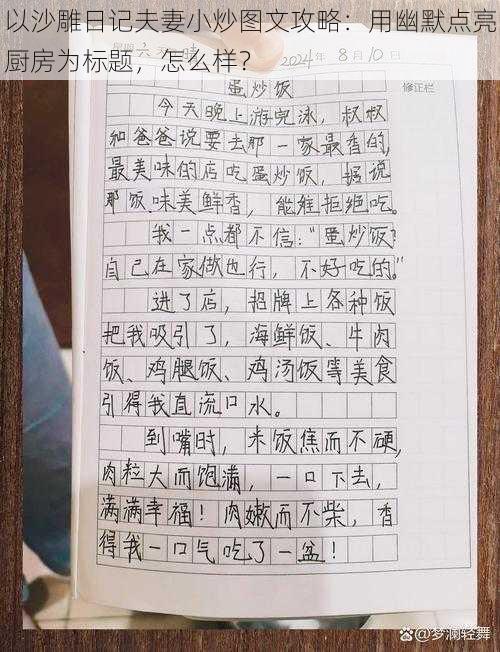 以沙雕日记夫妻小炒图文攻略：用幽默点亮
厨房为标题，怎么样？
2024年 8月10
蛋炒饭
修正栏
今天晚上游完泳，叔叔
和爸爸说要去那一家最香的,
最美味的店吃蛋炒饭，据说
那饭味美鲜香，能难拒绝吃。
我一点都不信："蛋炒饭?
自己在家做也行，不好吃的。"
进了店，招牌上各种饭
把我吸引了，海鲜饭、牛肉
饭、鸡腿饭、鸡汤饭等美食
引得我直流口水。
到嘴时，米饭焦而不硬,
肉粒大而饱满，一口下去,
满满幸福！肉嫩而不柴，香
得我一口气吃了一盆！
@梦澜轻舞